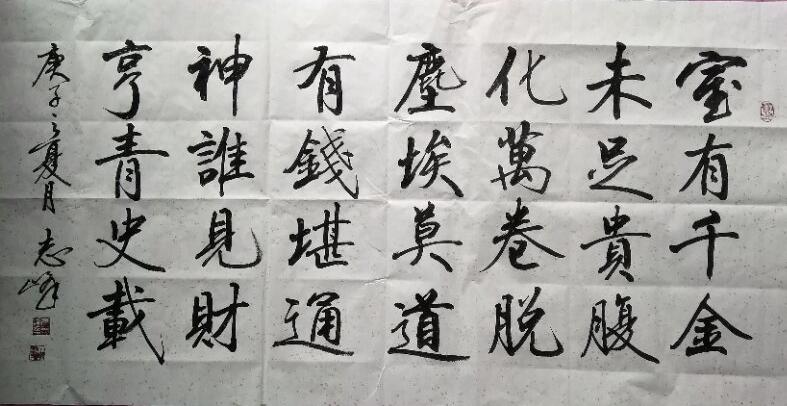 室有千金
未足貴腹
化萬卷脱
塵埃莫道
有錢堪通
神誰見財
亨青史載
庚子之夏月 志峰